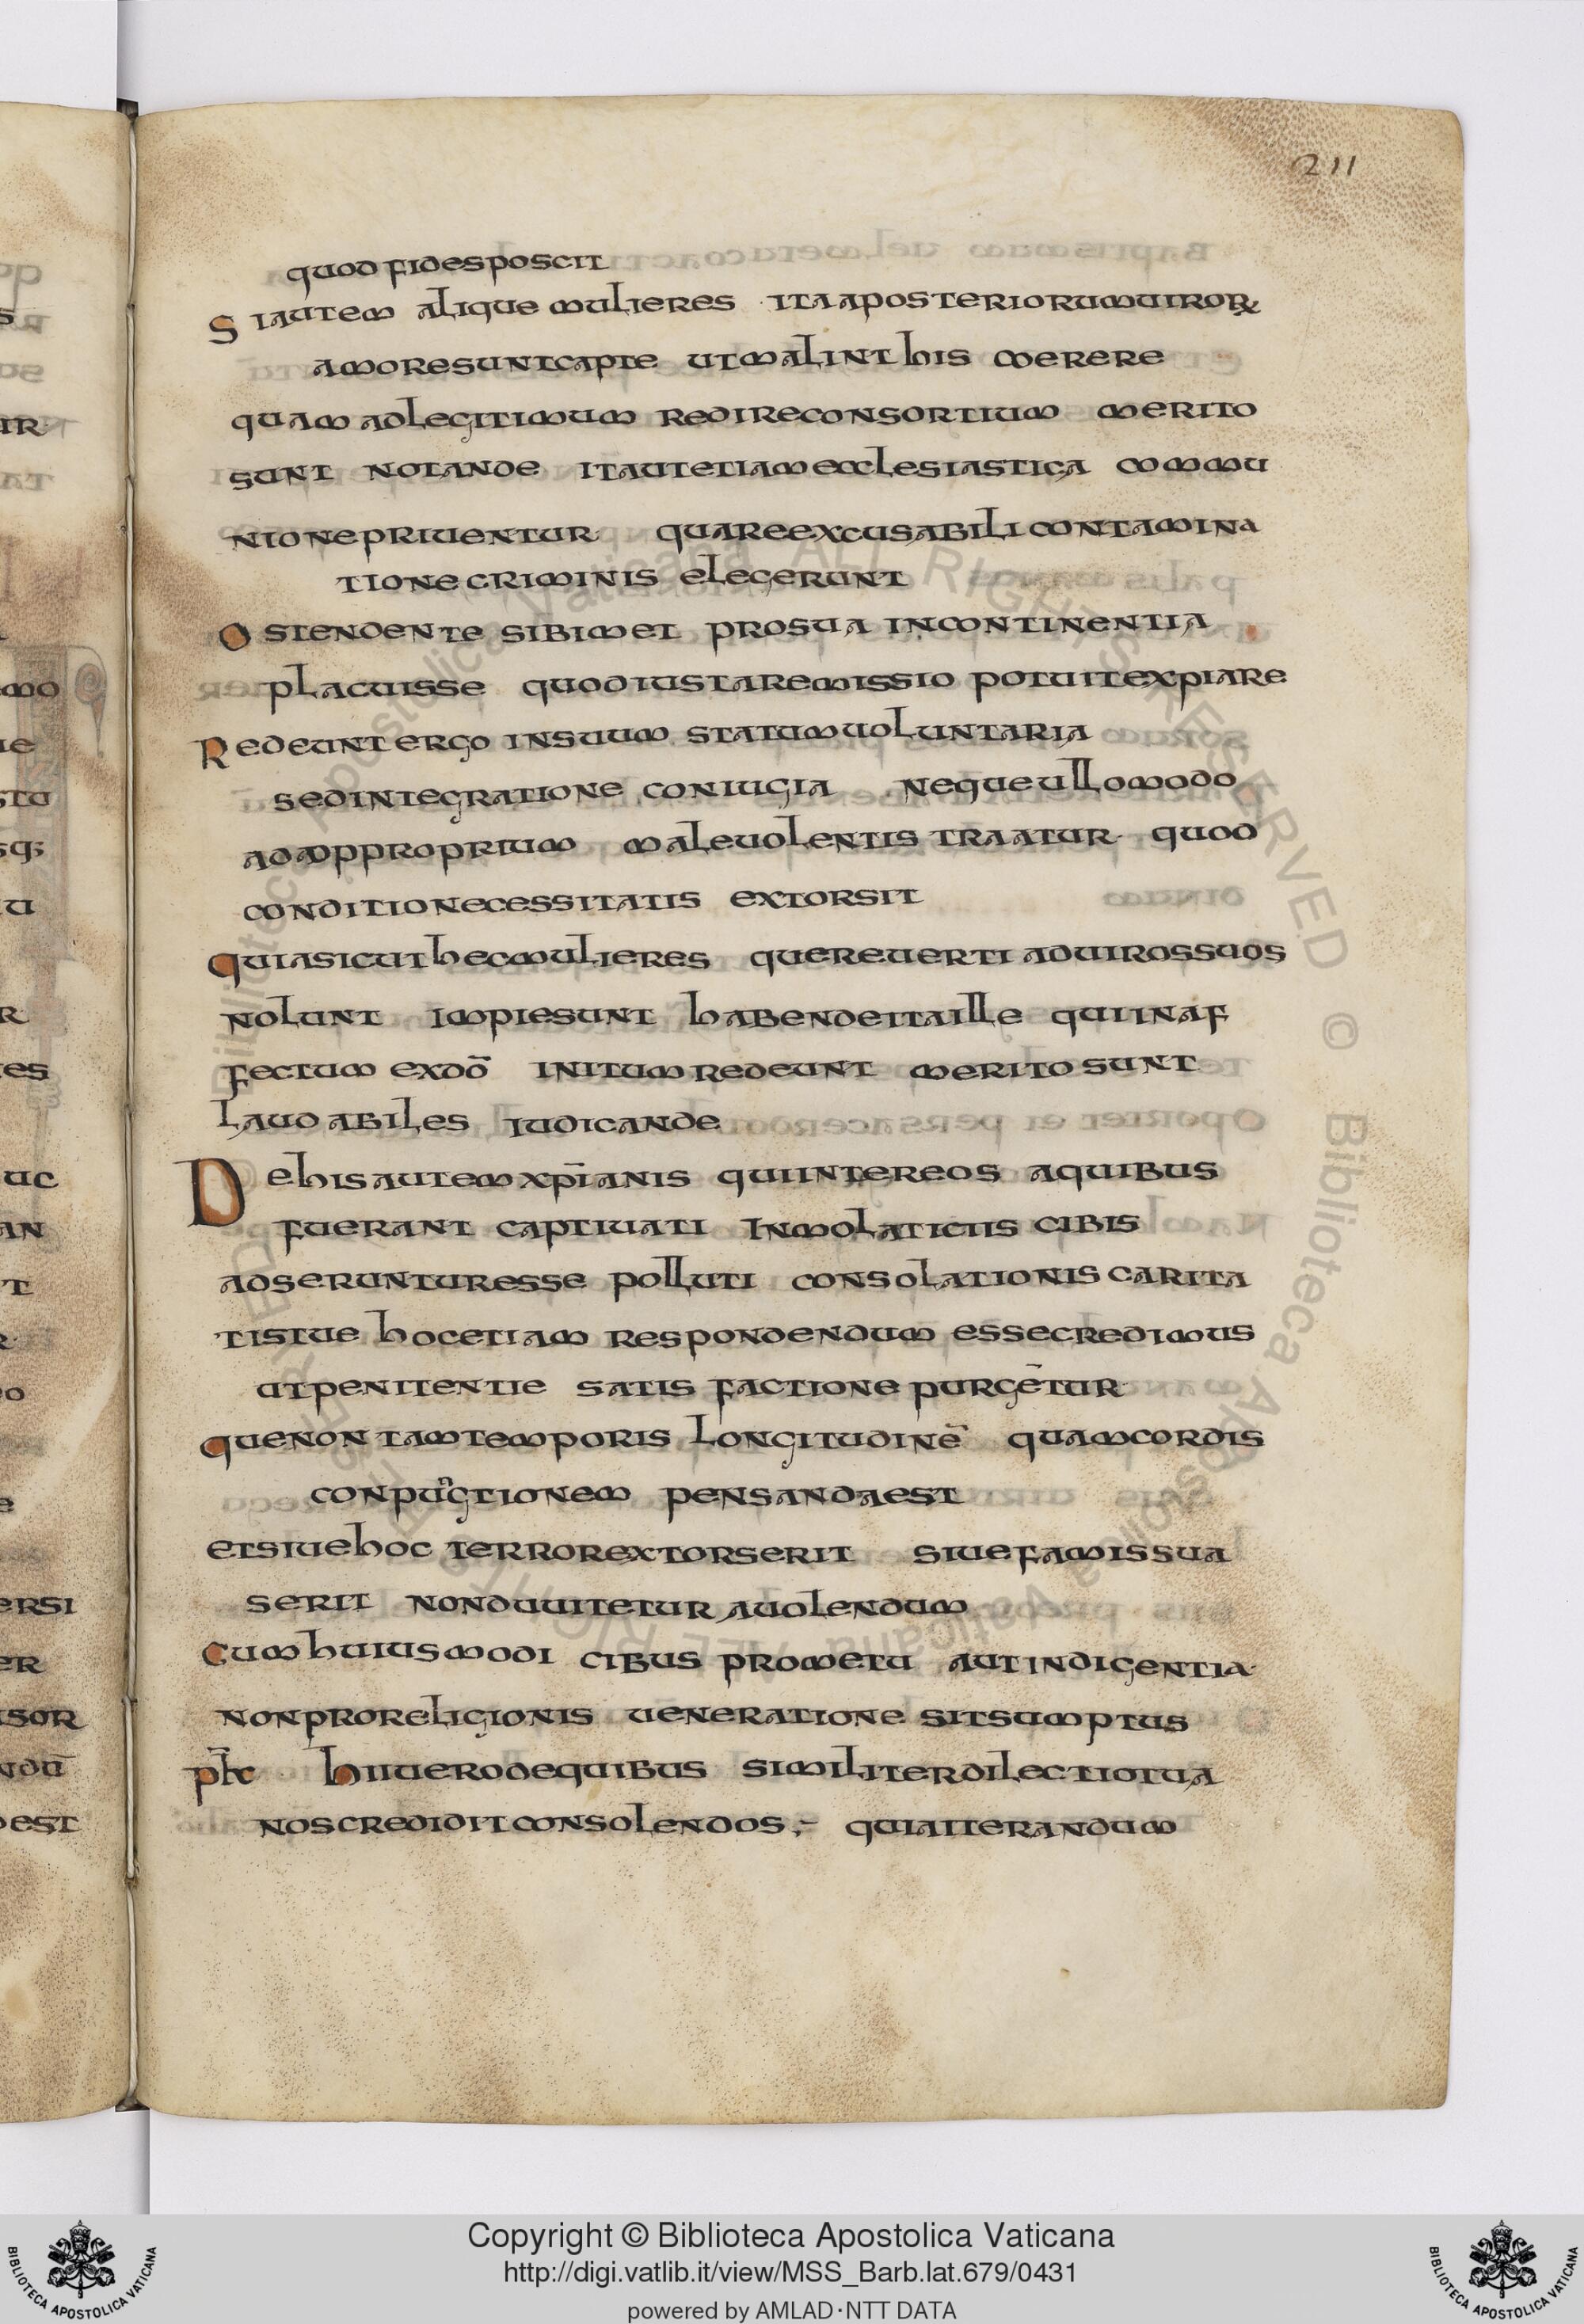 211
quod fides poscit
Si autem alique mulieres ita aposteriorum uiroꝝ
amore sunt capte ut malint his coerere
quam ad legitimum redire consortium merito
sunt notande ita ut etiam ecclesiastica commu
nione priuentur quare excusabili contamina
tione criminis elegerunt
Ostendente sibimet pro sua incontinentia
placuisse quod iusta remissio potuit expiare
Redeunt ergo in suum statum uoluntaria
sed integratione coniugia neque ullo modo
ad oppproprium maleuolentiis traatur quod
conditio necessitatis extorsit
quia sicut hec mulieres que reuerti ad uiros suos
nolunt impie sunt habende ita ille qui in af
fectum ex dō initum redeunt merito sunt
laudabiles iudicande
De his autem xp̄ianis qui inter eos a quibus
fuerant captiuati inmolaticiis cibis
adseruntur esse polluti consolationis carita
tis tue hoc etiam respondendum esse credimus
ut penitentie satisfactione purgētur
que non tam temporis longitudinē quam cordis
conpunctionem pensanda est
et siue hoc terror extorserit siue famis sua
serit non duuitetur auolendum
Cum huiusmodi cibus pro metu aut indigentia
non pro religionis ueneratione sit sumptus
hii uero de quibus similiter dilectio tua
nos credidit consolendos quia iterandum
Copyright © Biblioteca Apostolica Vaticana
http://digi.vatlib.it/view/MSS_Barb.lat.679/0431
powered by AMLAD·NTT DATA
BIBLIOTECA APOSTOLICA VATICANA
BIBLIOTECA APOSTOLICA VATICANA